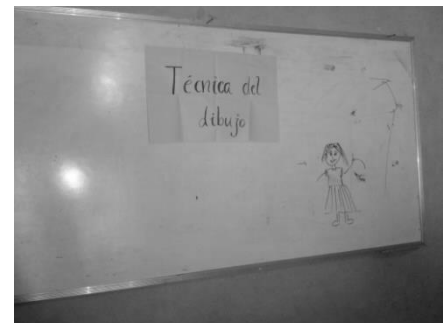 Técnica del
dibujo